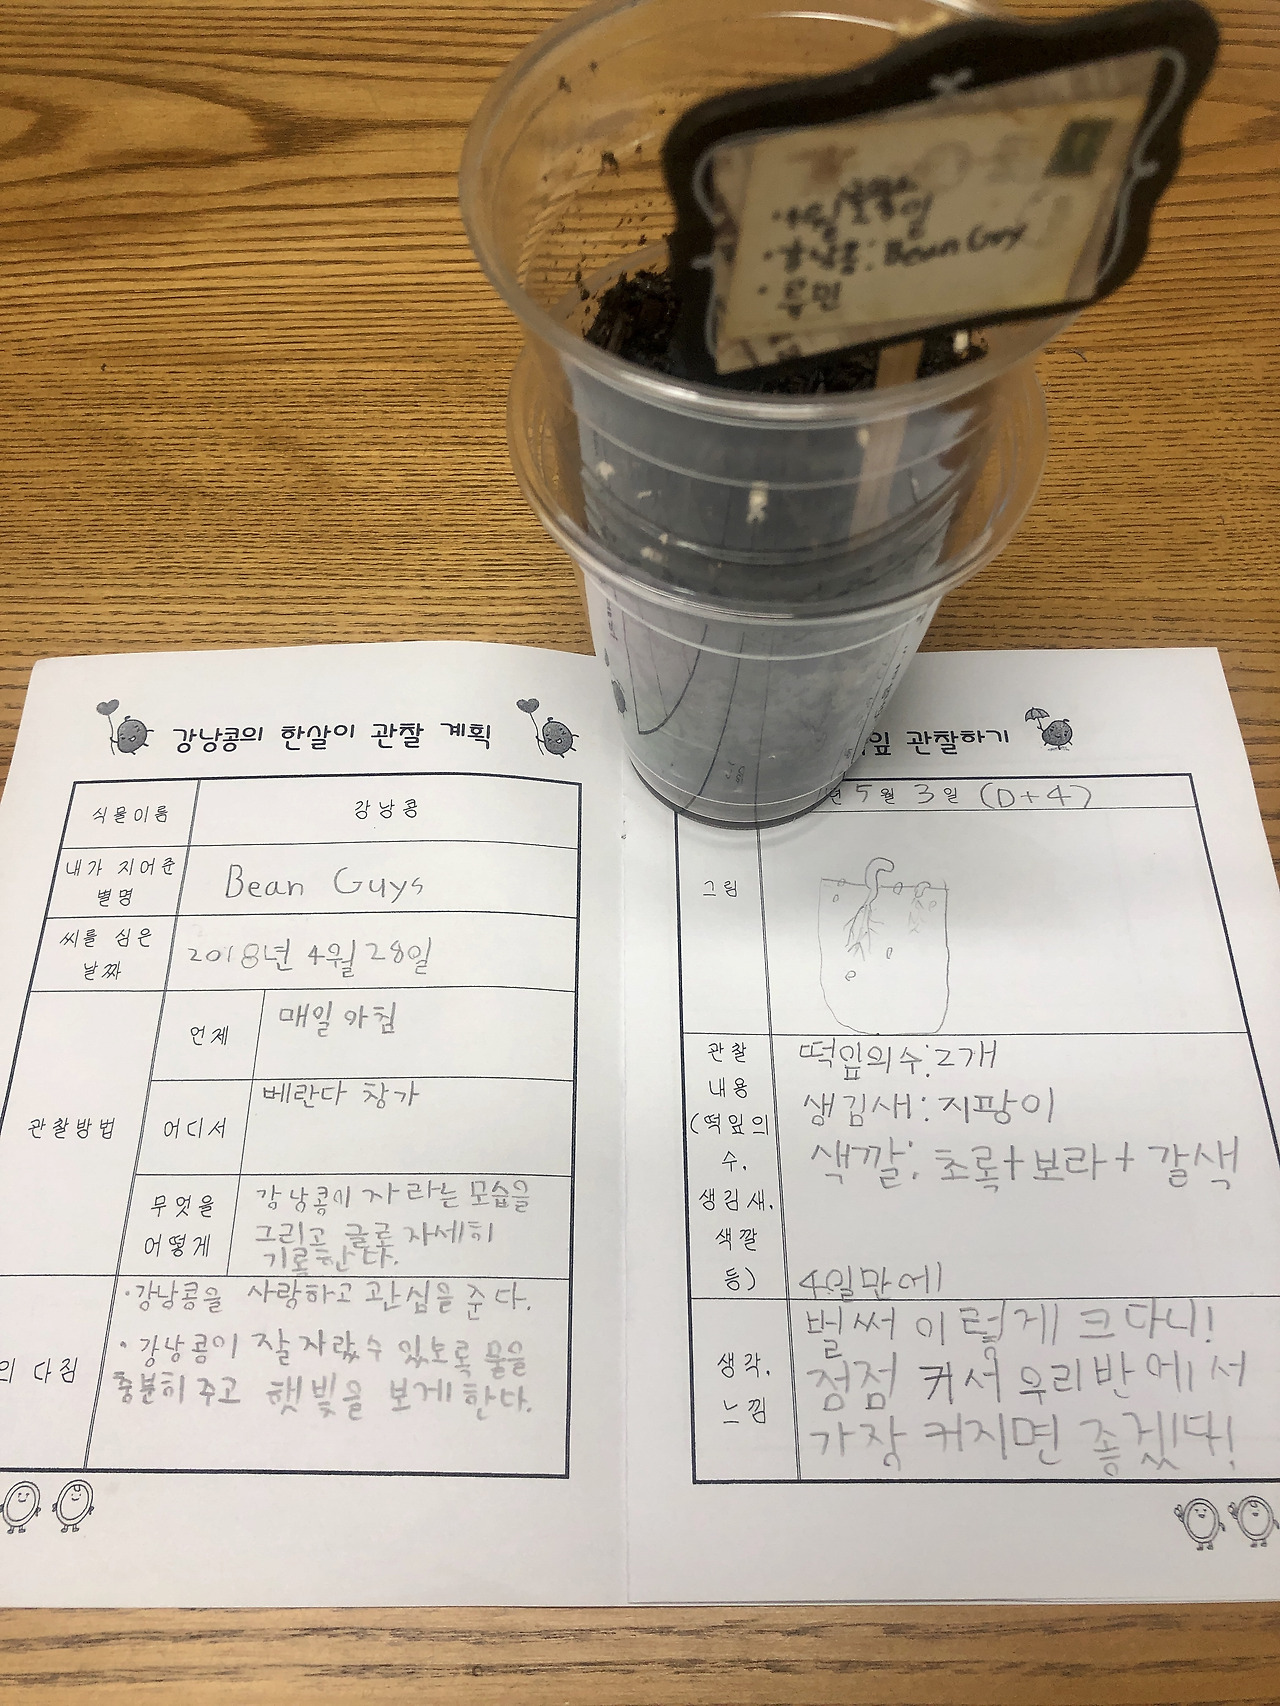 Bean Guy
강낭콩의 한살이 관찰 계획
식물이름
강낭콩
내가 지어준
별명
Bean Guys
씨를 심은
날짜
2018년 4월 28일
관찰방법
언제
매일 아침
어디서
베란다 창가
무엇을
어떻게
강낭콩이 자라는 모습을
그리고 글로 자세히
기록한다.
의 다짐
·강낭콩을 사랑하고 관심을 준다.
·강낭콩이 잘 자랄수 있도록 물을
충분히 주고 햇빛을 보게 한다.
잎 관찰하기
년 5월 3일 (D+4)
그림
관찰
내용
(떡잎의
수,
생김새,
색깔
등)
떡잎의 수:2개
생김새: 지팡이
색깔: 초록+보라+갈색
생각,
느낌
4일만에
벌써 이렇게 크다니!
점점 커서 우리반에서
가장 커지면 좋겠다!